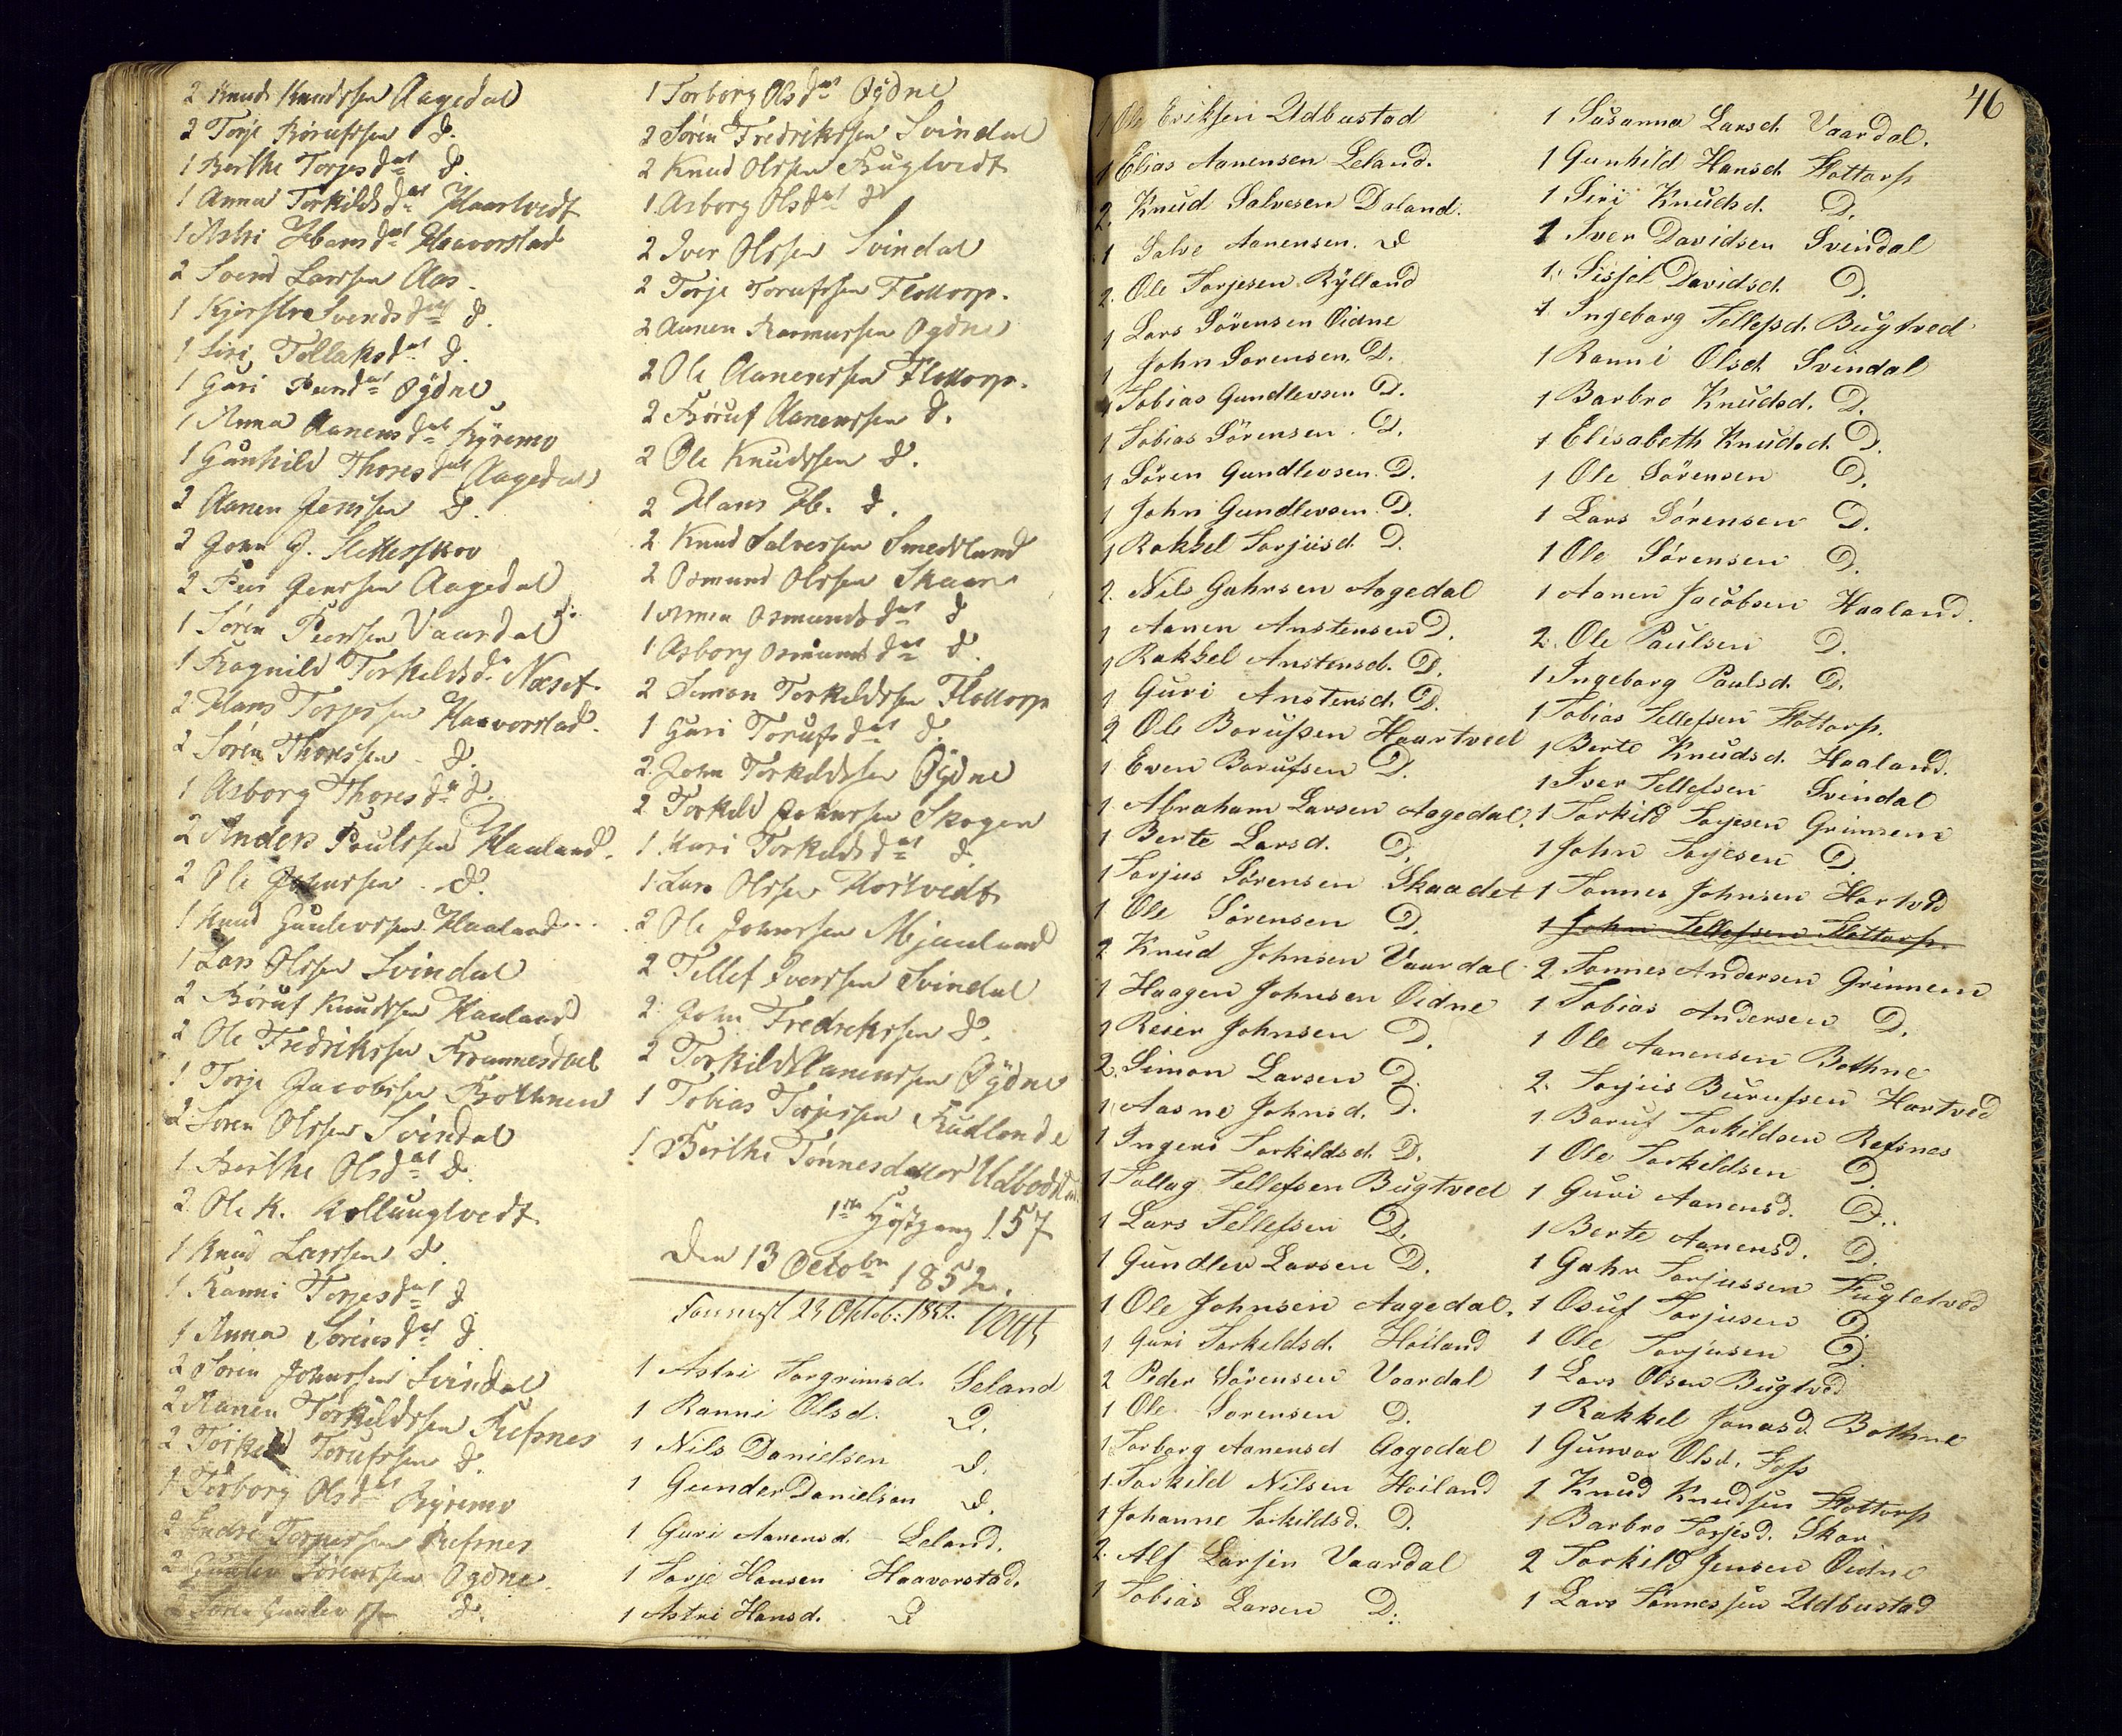 2 Knud Knudssen Aagedal
2 Torje Børufssen d.
1 Berthe Torjesdat d.
1 Anna Torkildsdat Haartvedt
1 Astri Hansdat Haavorstad
2 Svend Larssen Aas.
1 Kjerstra Svendsdat d.
1 Siri Tollaksdat d.
1 Guri Peersdat Øÿdne
1 Anna Aanensdat Rÿremo
1 Gunhild Thoresdat Aagedal
2 Aanen Jenssen d.
2 John J. Slettesskov
2 Peer Jenssen Aagedal
1 Søren Peerssen Vaardal
1 Ragnild Torkildsd. Næset.
2 Hans Torjessen Haavorstad.
2 Søren Thoressen d.
1 Asborg Thoresd. d.
2 Anders Poulssen Haaland.
2 Ole Johnssen d.
1 Knud Gunlevssen Haaland
1 Lars Olssen Svindal
2 Børuf Knudssen Haaland
2 Ole Fredrikssen Kromnesdal
1 Torje Jacobssen Bothnen
2 Søren Olssen Svindal
1 Berthe Olsdat d.
2 Ole K. Kollungtvedt
1 Knud Larssen d.
1 Ranni Torjesdat d
1 Anna Sørensdat d
2 Søren Johnssen Svindal
2 Aanen Torkildssen Refsnes
2 Torkild Torufssen d.
1 Torborg Olsdat Rÿremo
2 Endre Torjussen Refsnes
2 Gunlev Sørenssen Øydne
2 Søren Gunlevssen d.
1 Torborg Olsdat Øÿdne
2 Søren Fredrikssen Svindal
2 Knud Olssen Bugtvedt
1 Asborg Olsdat d
2 Iver Olssen Svindal
2 Torje Torufssen Flottorp.
2 Aanen Rasmussen Øydne
2 Ole Aanenssen Flottorp.
2 Børuf Aanenssen d.
2 Ole Knudssen d.
2 Hans H. d.
2 Knud Salvessen Smedsland
2 Osmund Olssen Skaar
1 Anna Osmundsdat d
1 Asborg Osmundsdat d.
2 Simon Torkildssen Flottorp
1 Guri Torufsdat d.
2 John Torkildssen Øÿdne
2 Torkild Johnssen Skogen
1 Kari Torkildsdat d.
1 Lars Olssen Hortvedt
2 Ole Johnssen Mjauland
2 Tellef Iverssen Svindal
2 John Fredrikssen d.
2 Torkild Aanenssen Øÿdne
1 Tobias Torjessen Rudlende
1 Berthe Tønnesdatter Udbodst
1ste Høstgang 157
Den 13 Octobr 1852.
1 Astri Torgrimsd. Leland
1 Ranni Olsd. D.
1 Nils Danielsen D.
1 Gunder Danielsen D.
1 Guri Aanensd. Leland.
1 Torje Hansen Haavorstad.
1 Astri Hansd. D
46
1 Ole Eriksen Udbustad
1 Elias Aanensen Leland.
2. Knud Salvesen Daland.
1 Salve Aanensen. D
2. Ole Torjesen Rÿlland
1 Lars Sörensen Oidne
1 John Sorensen D.
1 Tobias Gundlevsen D.
1 Tobias Sörensen. D.
1 Sören Gundlevsen. D.
1 John Gundlevsen. D.
1 Rakkel Torjusd. D.
2. Nils Gahrsen Aagedal
1 Aanen Anstensen D.
1 Rakkel Anstensd. D.
1 Guri Anstensd. D.
2 Ole Borufsen Haartved
1 Even Borufsen D.
1 Abraham Larsen Aagedal.
1 Berte Larsd. D.
1 Torjus Sörensen Skaadet
1 Ole Sörensen D.
2 Knud Johnsen Vaardal
1 Haagen Johnsen Oidne
1 Reier Johnsen D.
2. Simon Larsen D
1 Aasne Johnsd. D.
1 Ingeri Torkildsd. D.
1 Tollag Tellefsen Bugtved
1 Lars Tellefsen D.
1 Gundlev Larsen D.
1 Ole Johnsen Aagedal.
1 Guri Torkildsd. Hoiland
2 Peder Sörensen Vaardal
1 Ole Sorensen D.
1 Torborg Aanensd Aagedal
1 Torkild Nilsen Hoiland
1 Johanne Torkildsd. D.
2. Alf Larsen Vaardal
1 Tobias Larsen D.
1 Susanna Larsd. Vaardal.
1 Gunhild Hansd. Flottorp
1 Siri Knudsd. D.
1 Iver Davidsen Svindal
1. Sissel Davidsd. D.
1 Ingeborg Tellefsd. Bugtved
1 Ranni Olsd. Svindal
1 Barbro Knudsd. D.
1 Elisabeth Knudsd. D.
1 Ole Sörensen D.
1 Lars Sörensen D.
1 Ole Sörensen D.
1 Aanen Jacobsen Haaland.
2. Ole Paulsen D.
1 Ingeborg Paulsd. D.
1 Tobias Tellefsen Flottorp.
1 Berte Knudsd. Haaland.
1 Iver Tellefsen Svindal
1 Torkild Torjesen Grimnem
1 John Torjesen D
1 Tonnes Johnsen Hortved
1 John Tellefsen Flottorp.
2 Tonnes Andersen Grimnem
1 Tobias Andersen D.
1 Ole Aanensen Bothne
2. Torjus Burufsen Hortved
1. Boruf Torkildsen Refsnes
1 Ole Torkildsen D.
1 Guri Aanensd. D.
1 Berte Aanensd. D.
1 Gahr Torjussen Fugletved
1 Osuf Torjusen D.
1 Ole Torjusen D.
1 Lars Olsen Bugtved
1 Rakkel Jonasd. Bothne
1 Gunvor Olsd. Foss
1 Knud Knudsen Flottorp
1 Barbro Torjesd. Skar
2 Torkild Jensen Oidne
1 Lars Tonnessen Udbustad